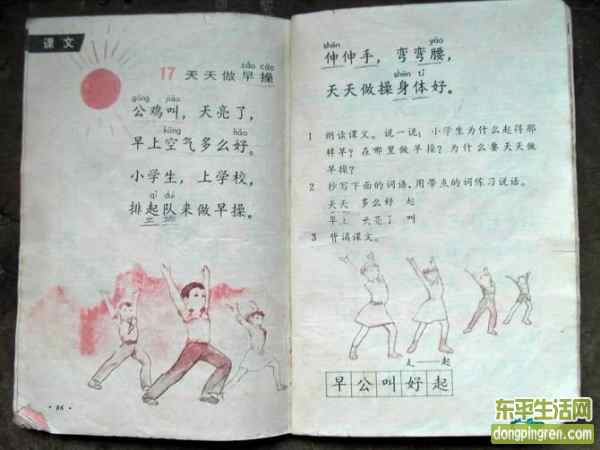 课文
zǎo cāo
17 天天做早操
gōng jiào
公鸡叫，天亮了，
kōng hǎo
早上空气多么好。
小学生，上学校，
qǐ duì
排起队来做早操。
· 86 ·
shēn yāo
伸伸手，弯弯腰，
shēn tǐ
天天做操身体好。
1 朗读课文。说一说：小学生为什么起得那
样早？在哪里做早操？为什么要天天做
早操？
2 抄写下面的词语，用带点的词练习说话。
天天 多么好 起
早上 天亮了 叫
3 背诵课文。
走——起
早公叫好起
东平生活网
dongpingren.com